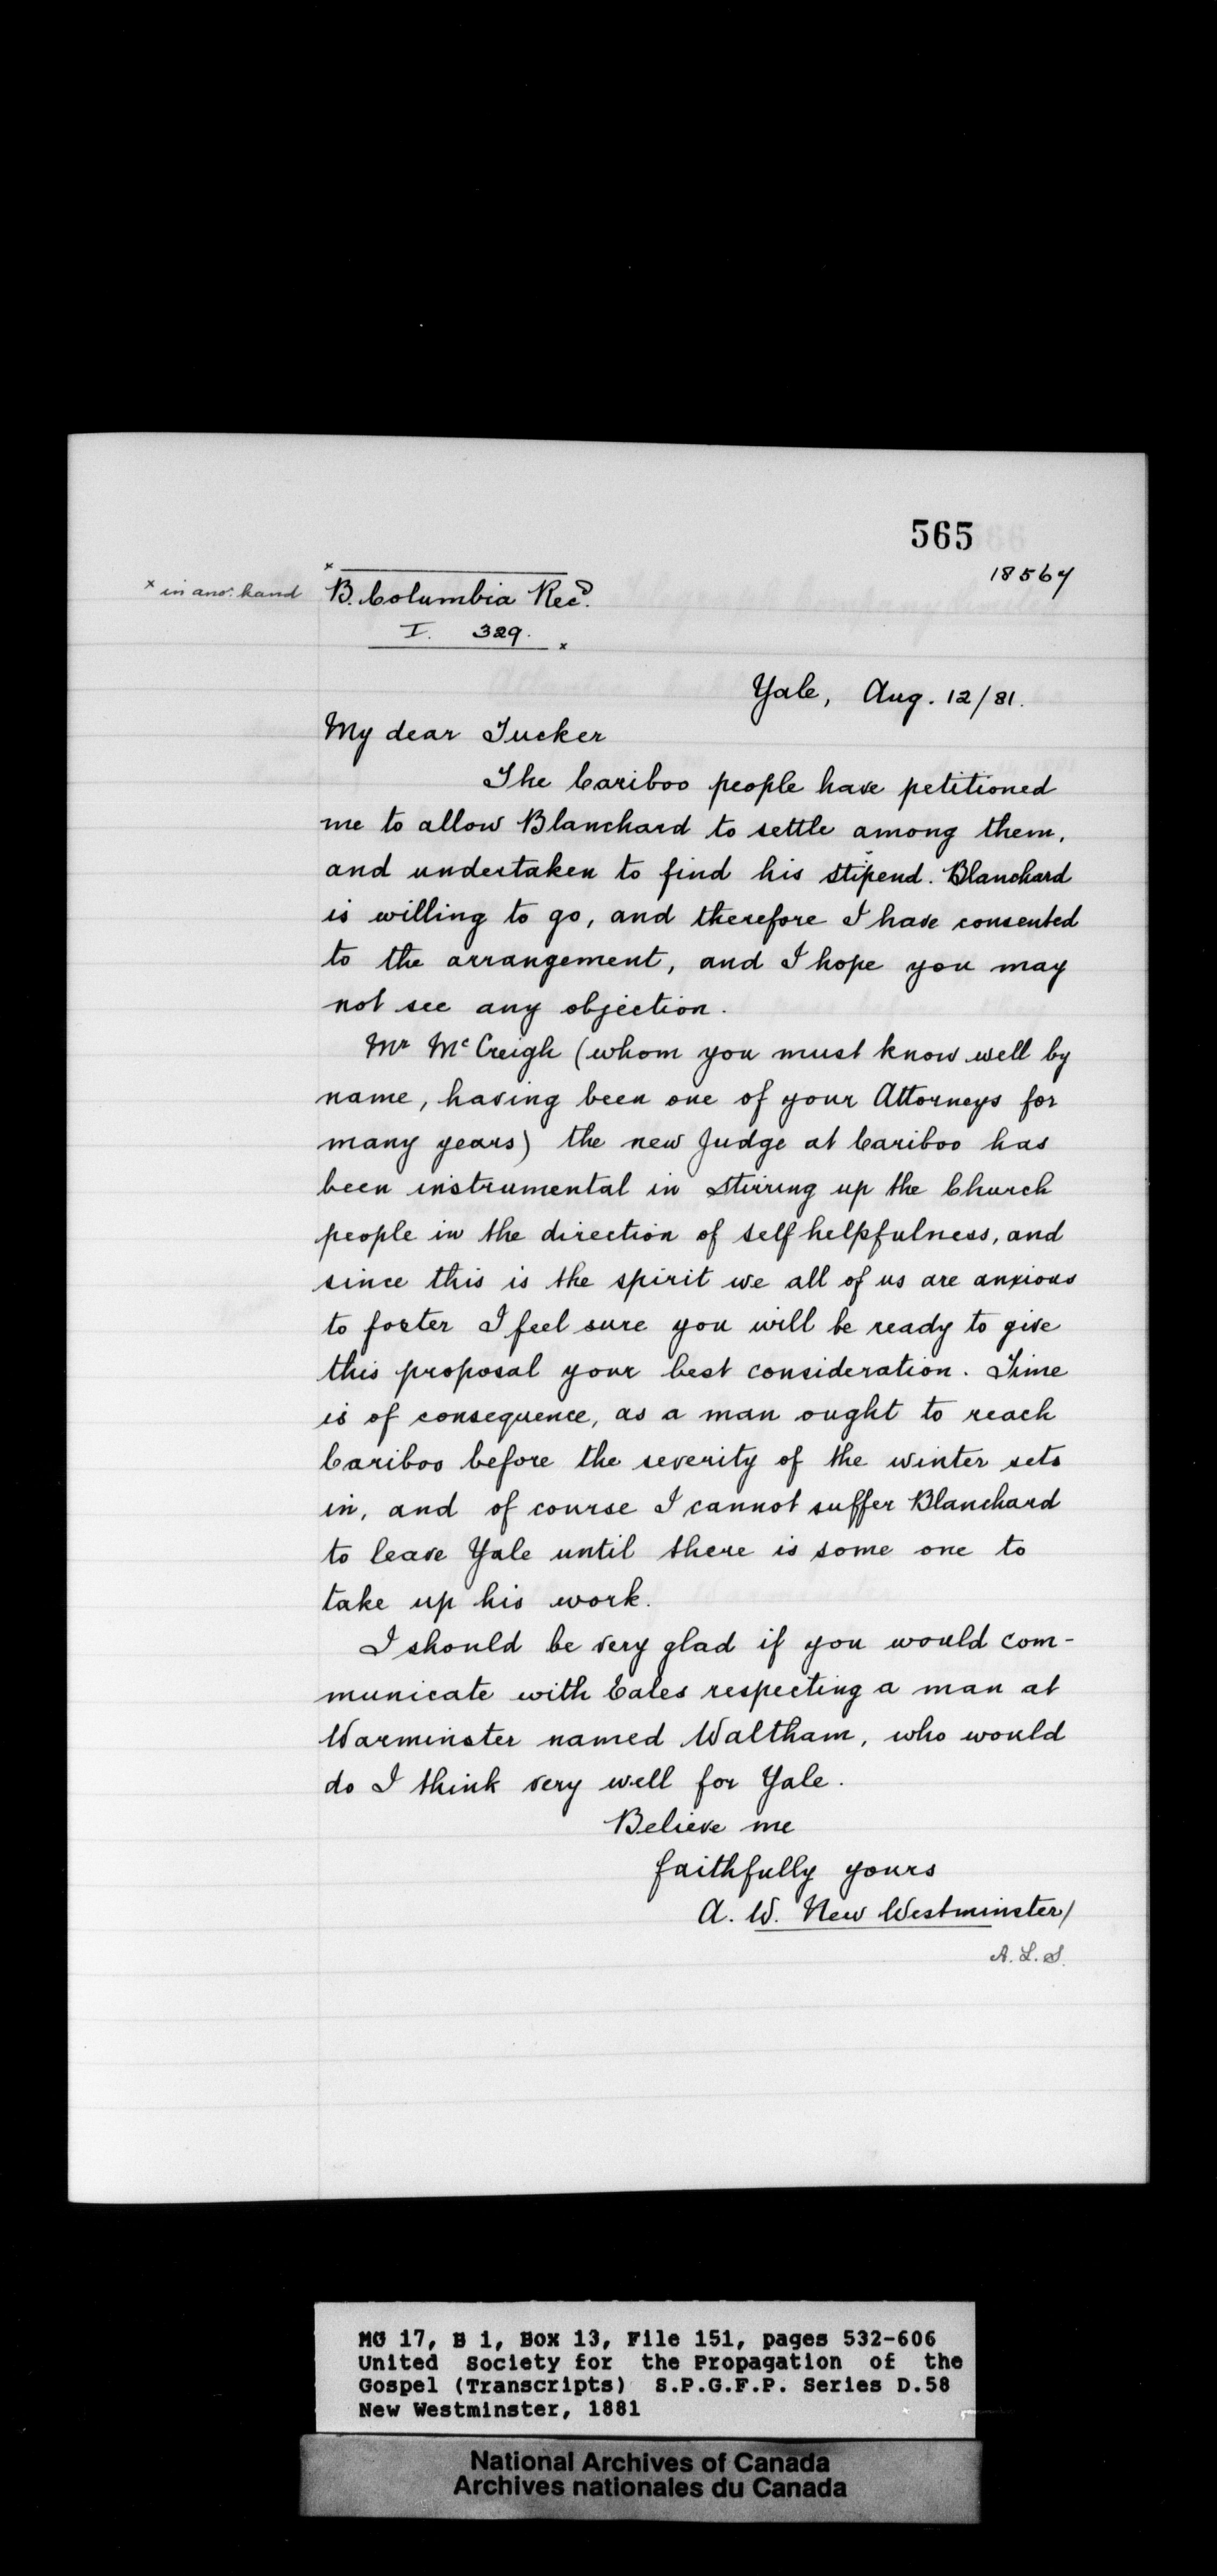 565
18567
x in ano: hand
x B. Columbia Recd.
I. 329. x
Yale, Aug. 12/81.
My dear Tucker
The Cariboo people have petitioned
me to allow Blanchard to settle among them,
and undertaken to find his stipend. Blanchard
is willing to go, and therefore I have consented
to the arrangement, and I hope you may
not see any objection.
Mr McCreigh (whom you must know well by
name, having been one of your Attorneys for
many years) the new Judge at Cariboo has
been instrumental in stirring up the Church
people in the direction of self helpfulness, and
since this is the spirit we all of us are anxious
to foster I feel sure you will be ready to give
this proposal your best consideration. Time
is of consequence, as a man ought to reach
Cariboo before the severity of the winter sets
in, and of course I cannot suffer Blanchard
to leave Yale until there is some one to
take up his work.
I should be very glad if you would com-
municate with Eales respecting a man at
Warminster named Waltham, who would
do I think very well for Yale.
Believe me
faithfully yours
A. W. New Westminster/
A. L. S.
MG 17, B 1, Box 13, File 151, pages 532-606
United Society for the Propagation of the
Gospel (Transcripts) S.P.G.F.P. Series D.58
New Westminster, 1881
National Archives of Canada
Archives nationales du Canada